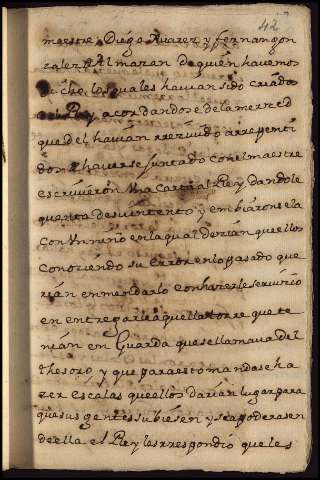 42
maestre, Diego Alvarez, y fernan gon
zalez Almazan de quien havemos
dicho, los quales havian sido criados
del Rey, acordandose de la merzed
que del havian rrezivido arrepenti
dos haverse juntado con el maestre
escrivieron una carta al Rey dandole
quenta de su intento y embiaronsela
con un niño en la qual dezian que ellos
conociendo su error en lo pasado que
rian enmendarlo con hazerle servizio
en entregarle aquella torre que te
nian en Guarda que se llamava del
thesoro, y que para esto mandase ha
zer escalas que ellos darian lugar para
que sus gentes subiesen y se apoderasen
de ella el Rey les rrespondió que les